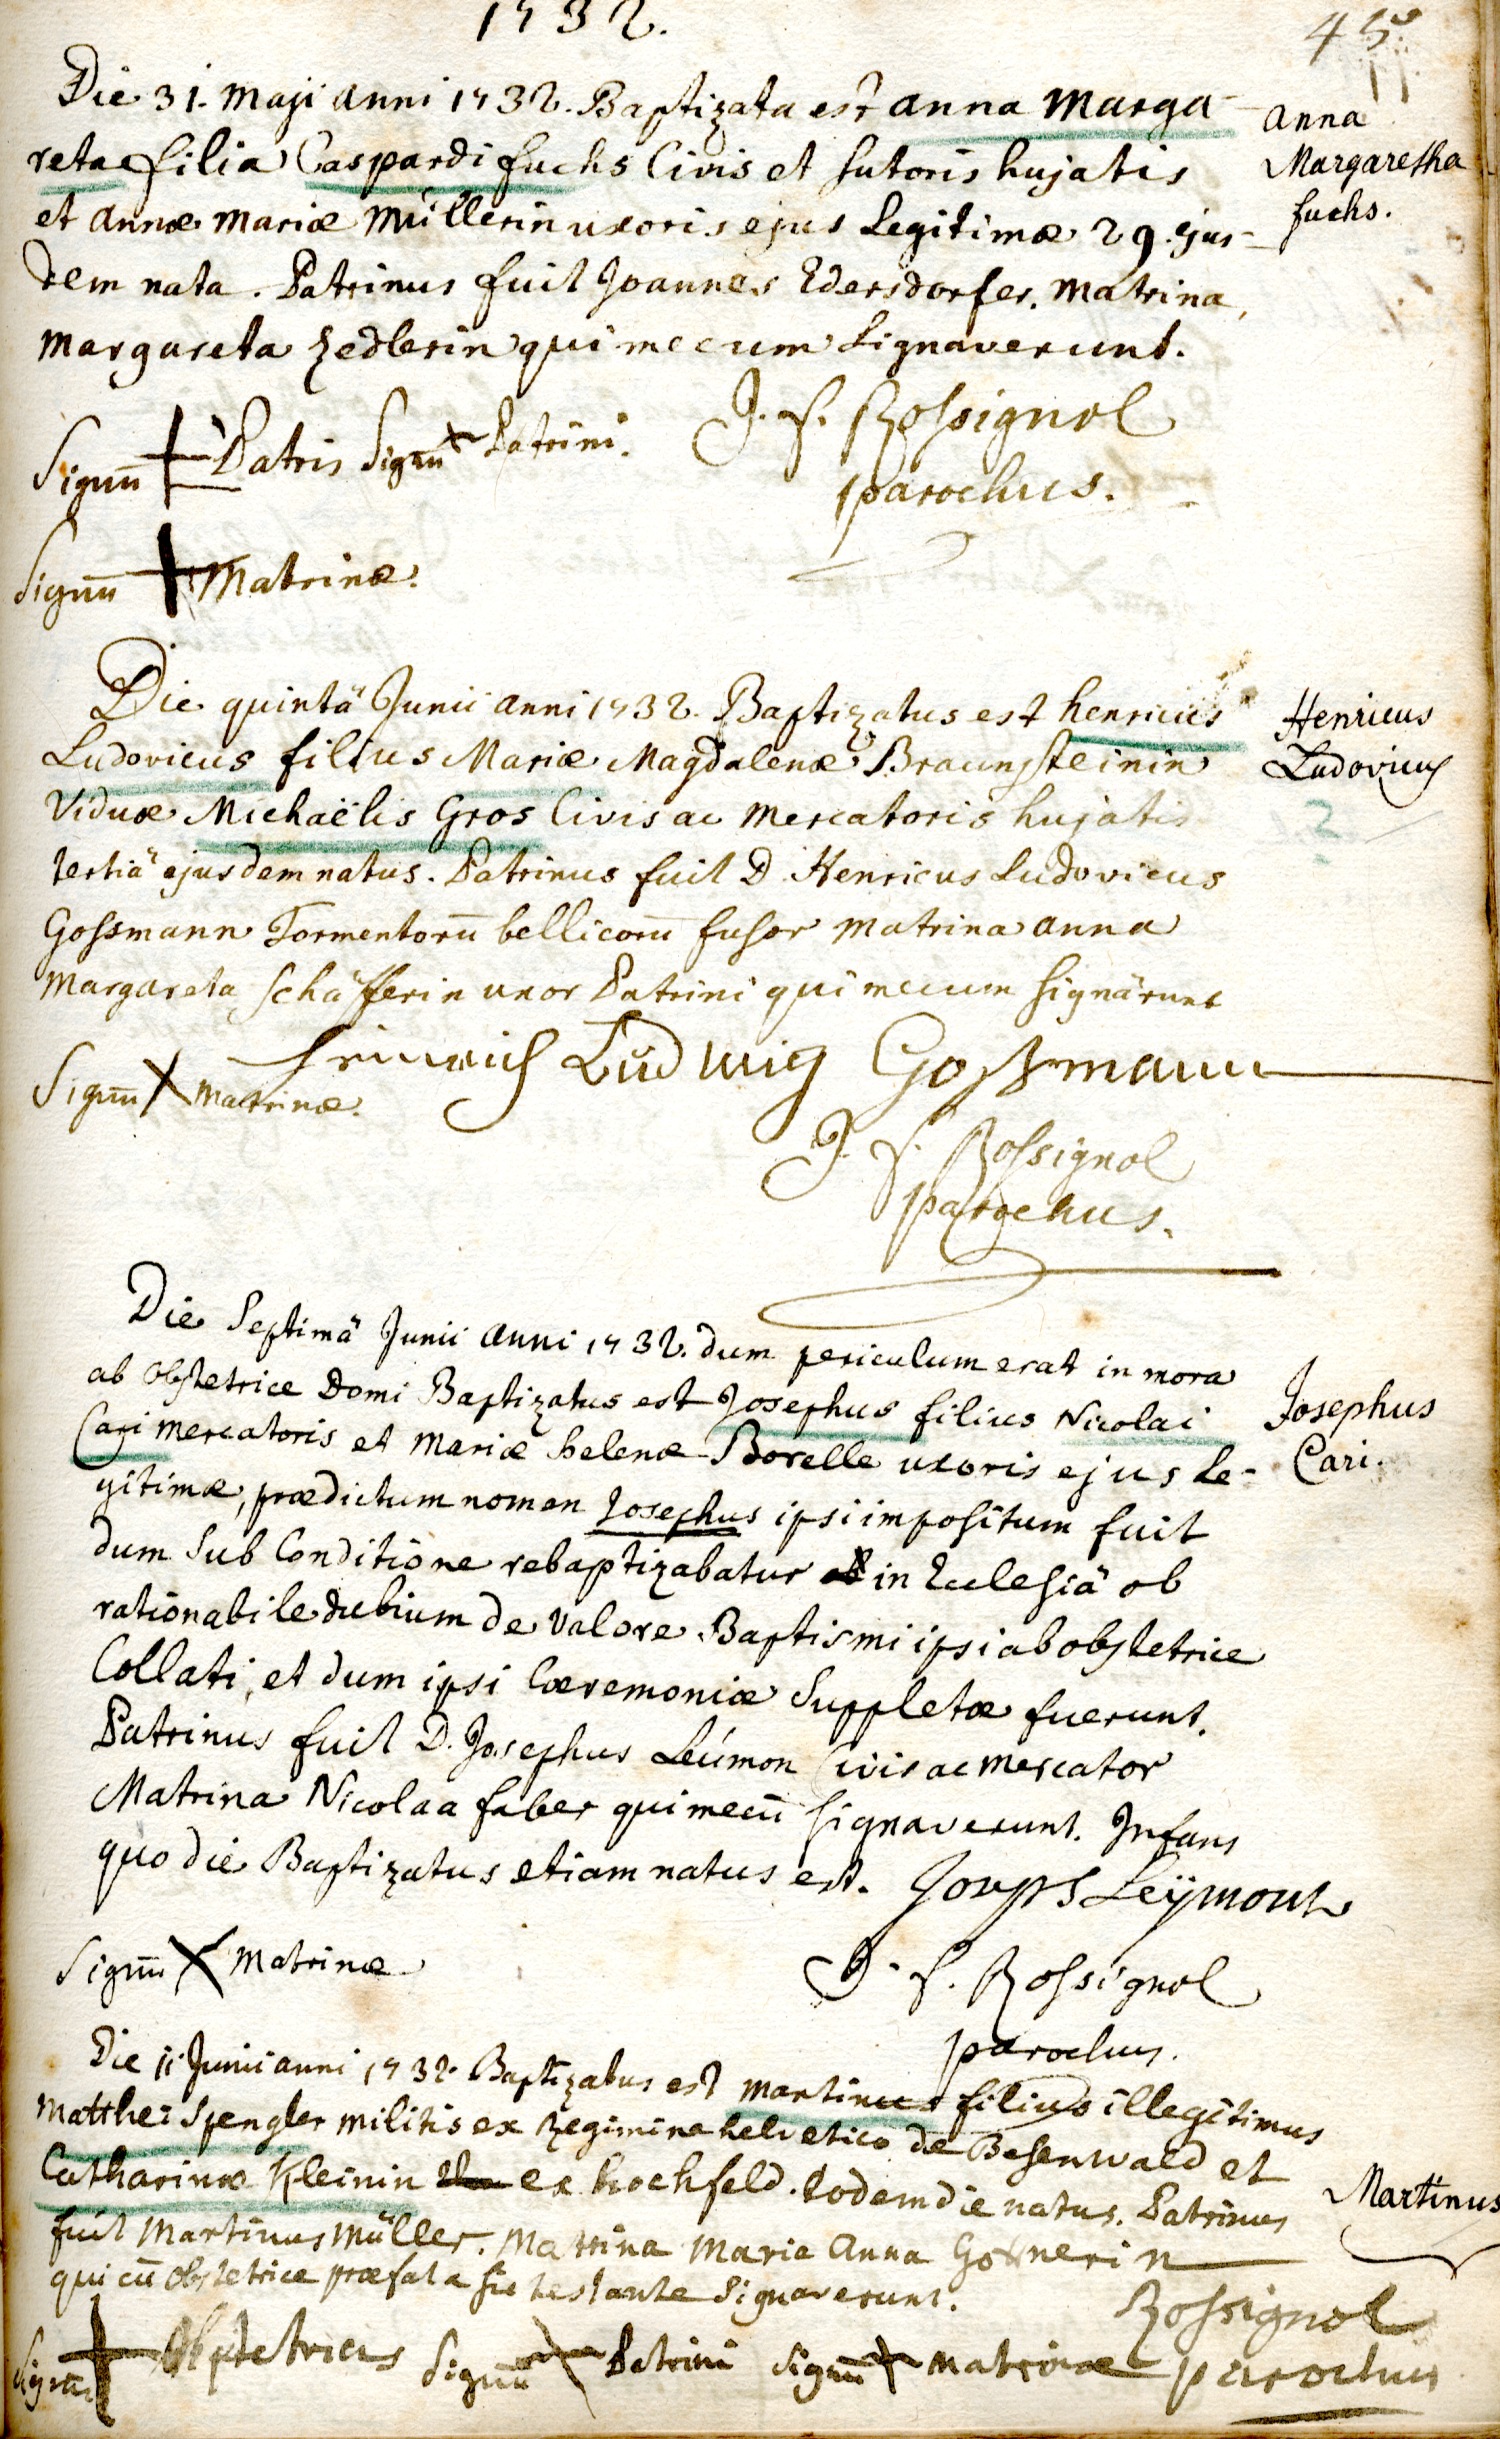 1732.
45
Die 31. Maji anni 1732. Baptizata est anna Marga-
reta filia Caspardi fuchs Civis et sutoris hujatis
et annæ Mariæ Müllerin uxoris ejus Legitimæ 29. ejus-
dem nata. Patrinus fuit Joannes Edersdorfer. Matrina,
Margareta Zedlerin qui mecum signaverunt.
anna
Margaretha
fuchs.
Signū Patris Signū Patrini.
J. F. Rossignol
parochus.
Signū Matrinæ.
Die quintâ Junii anni 1732. Baptizatus est henricus
Ludovicus filius Mariæ Magdalenæ Braunsteinin
Viduæ Michaëlis Gros Civis ac Mercatoris hujatis
tertiâ ejusdem natus. Patrinus fuit D. Henricus Ludovicus
Gossmann Tormentorū bellicorū fusor Matrina anna
Margareta schäfferin uxor Patrini qui mecum signârunt
Henricus
Ludovicus
?
Heinrich Ludwig Gossmann
Signū Matrinæ.
J. F. Rossignol
parochus.
Die Septimâ Junii anni 1732. dum periculum erat in mora
ab obstetrice Domi Baptizatus est Josephus filius Nicolai
Cari Mercatoris et Mariæ helenæ Borelle uxoris ejus Le-
gitimæ, prædictum nomen Josephus ipsi impositum fuit
dum sub Conditione rebaptizabatur in Ecclesiâ ob
rationabile dubium de valore Baptismi ipsi ab obstetrice
Collati, et dum ipsi Cæremoniæ Suppletæ fuerunt.
Patrinus fuit D. Josephus Leimon Civis ac Mercator
Matrina Nicolaa faber qui mecū signaverunt. Infans
quo die Baptizatus etiam natus est.
Josephus
Cari.
Joseph Leÿmont
Signū Matrinæ
J. F. Rossignol
parochus.
Die 11 Junii anni 1732. Baptizatus est Martinus filius illegitimus
Matthei Spengler militis ex Regimine helvetico de Besenwald et
Catharinæ Kleinin ex hochfeld. Eodem die natus. Patrinus
fuit Martinus Müller. Matrina Maria Anna Gornerin
qui cū Obstetrice præfata sic testante Signaverunt.
Martinus
Rossignol
parochus
Signū Obstetricis Signū Patrini Signū Matrinæ